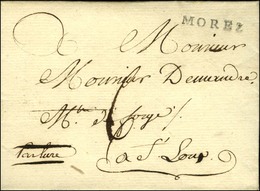 MOREZ
Monsieur
Monsieur Demandre
Mtre de forge /.
6
a St Loup